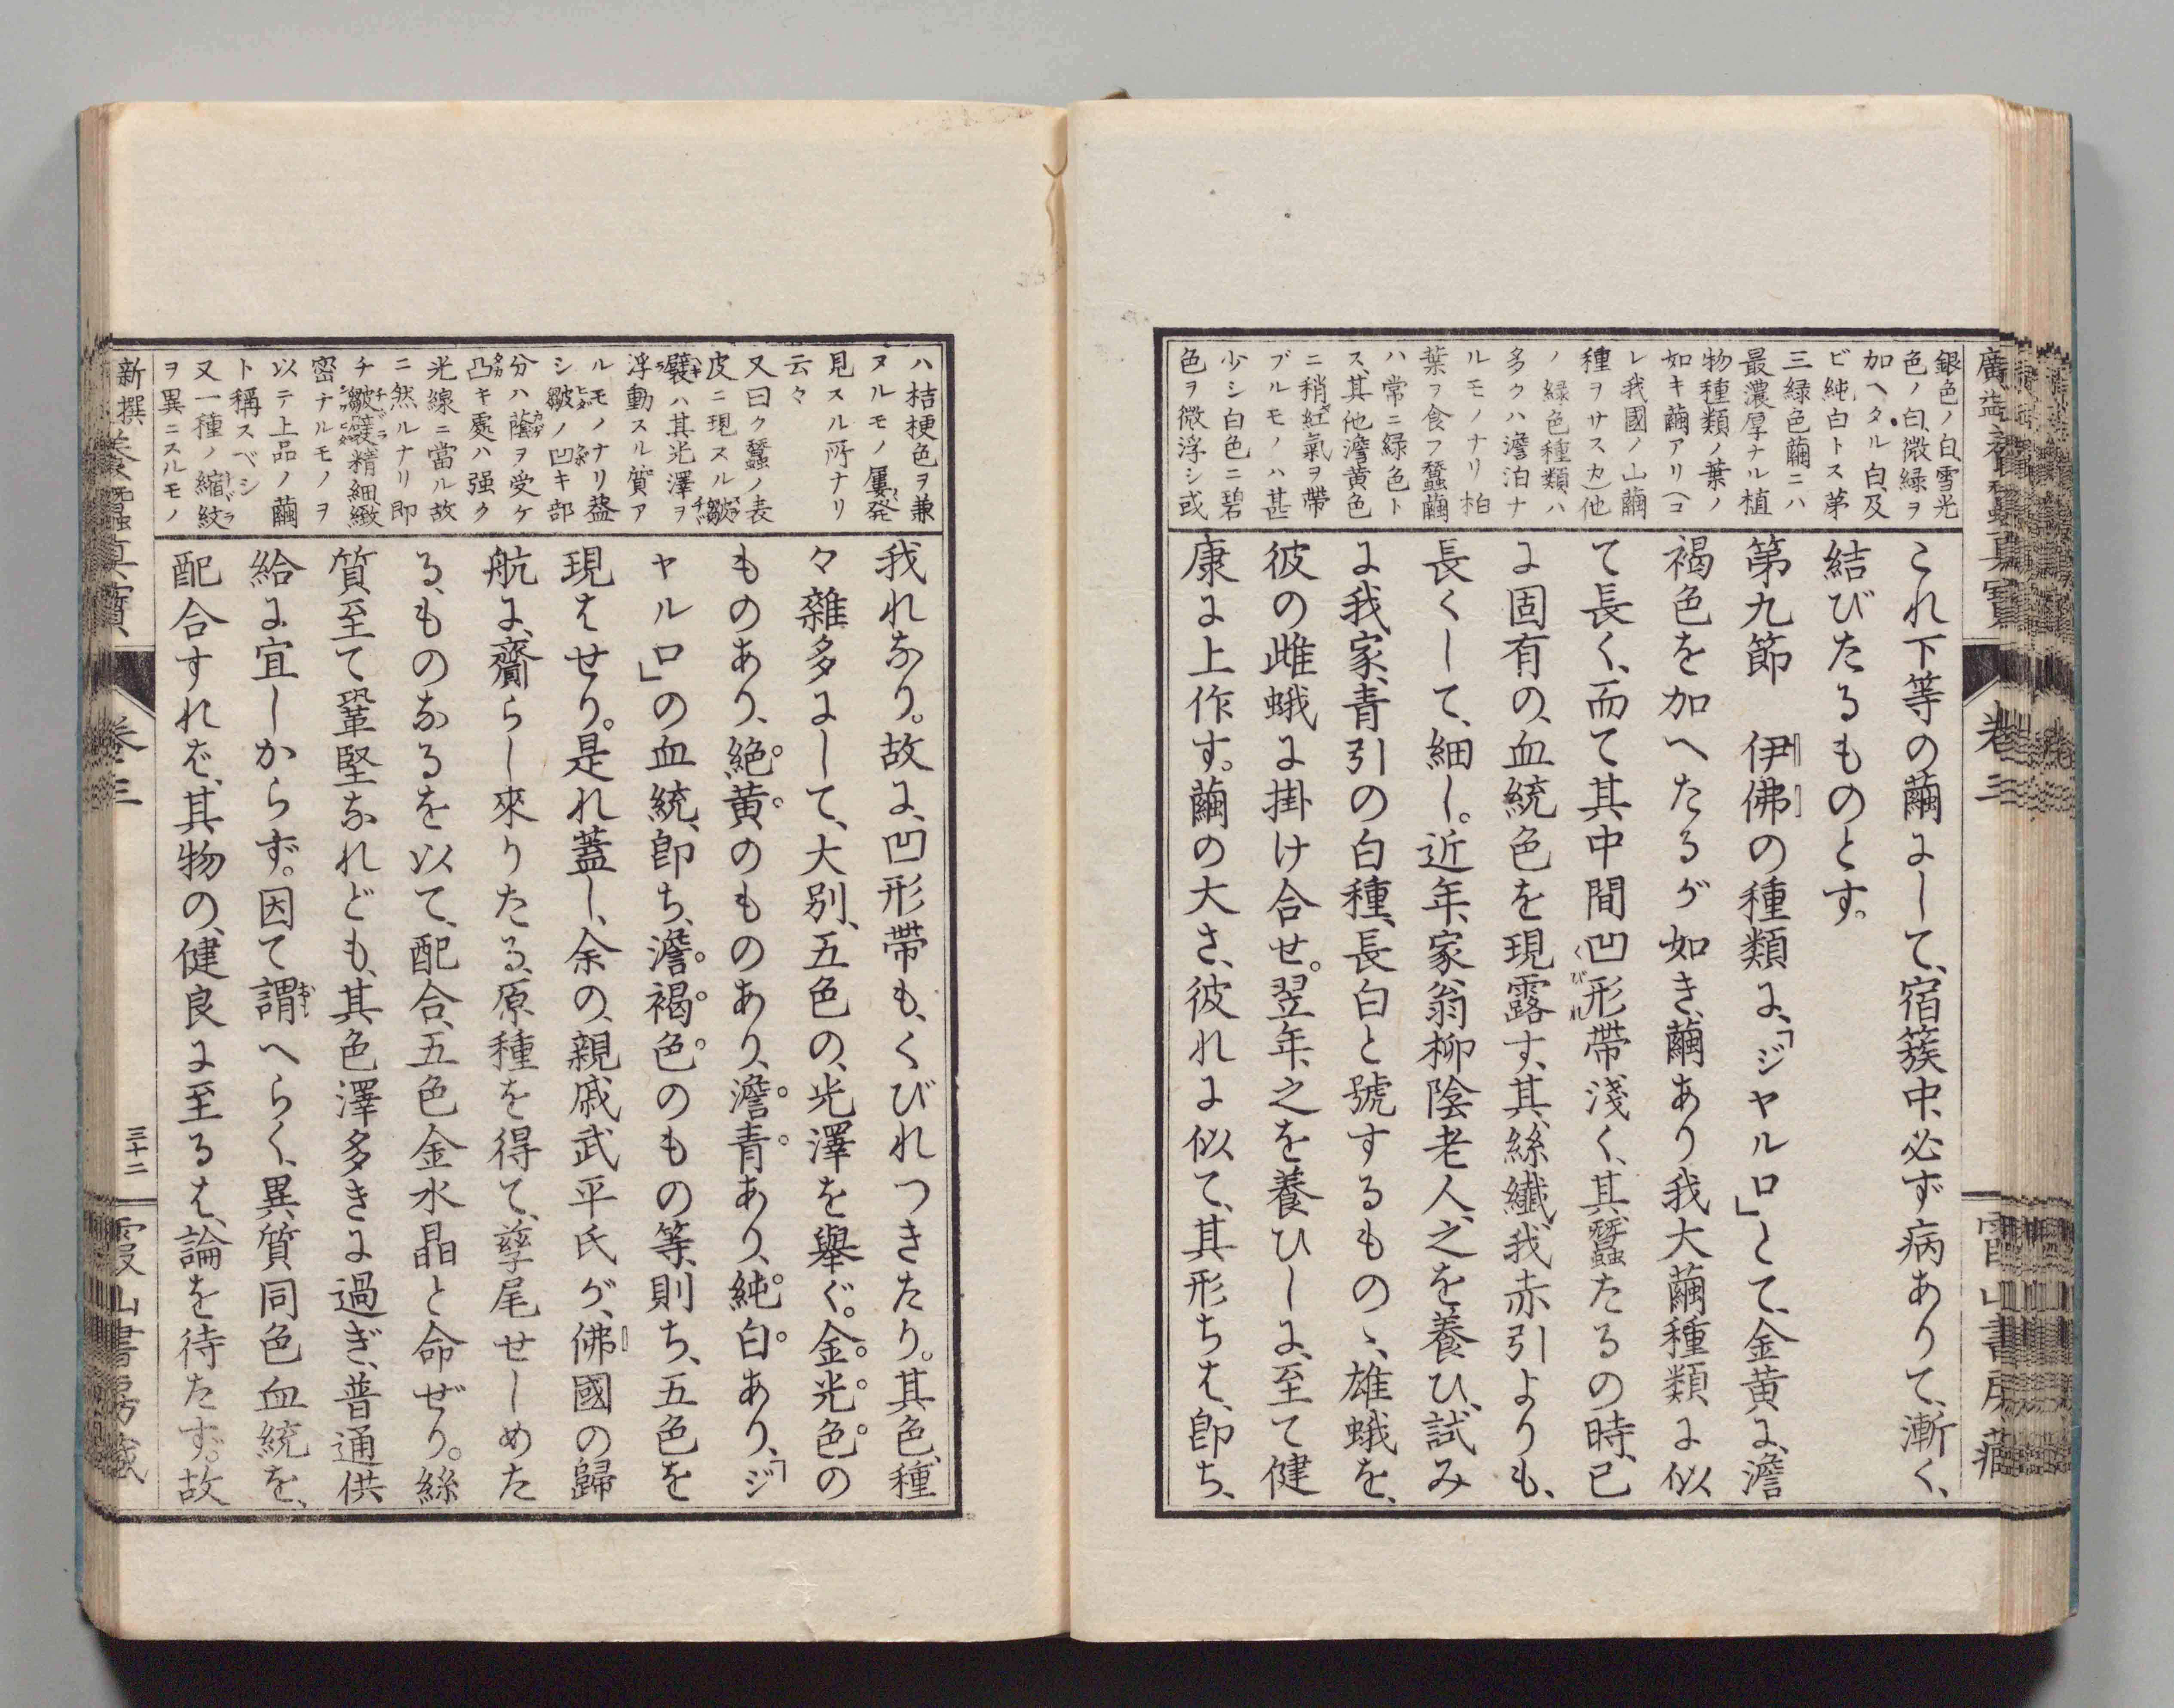 銀色ノ白、雪光
色ノ白、微緑ヲ
加ヘタル白、及
ビ純白トス第
三緑色繭ニハ
最濃厚ナル植
物種類ノ葉ノ
如キ繭アリ（コ
レ我國ノ山繭
種ヲサスカ）他
ノ緑色種類ハ
多クハ澹泊ナ
ルモノナリ柏
葉ヲ食フ蠶繭
ハ常ニ緑色ト
ス、其他澹黄色
ニ稍紅氣ヲ帶
ブルモノハ甚
少シ白色ニ碧
色ヲ微浮シ或
これ下等の繭にして、宿簇中、必ず病ありて、漸く、
結びたるものとす。
第九節　伊佛の種類に、「ジャルロ」とて、金黄に、澹
褐色を加へたるが如き、繭あり我大繭種類に似
て長く、而て其中間凹形帶淺く、其蠶たるの時、已
に固有の、血統色を現露す、其、絲纖、我赤引よりも、
長くして、細し。近年、家翁柳陰老人、之を養ひ、試み
に我家、青引の白種、長白と號するもの、雄蛾を、
彼の雌蛾に掛け合せ。翌年、之を養ひしに、至て健
康に上作す。繭の大さ、彼れに似て、其形ちは、卽ち、
卷三
ハ桔梗色ヲ兼
ヌルモノ屢發
見スル所ナリ
云々
又曰ク蠶ノ表
皮ニ現スル皺
襞ハ其光澤ヲ
浮動スル質ア
ルモノナリ蓋
シ皺ノ凹キ部
分ハ蔭ヲ受ケ
凸キ處ハ强ク
光線ニ當ル故
ニ然ルナリ即
チ皺襞精細緻
密ナルモノヲ
以テ上品ノ繭
ト稱スベシ
又一種ノ縮紋
ヲ異ニスルモノ
我れなり。故に、凹形帶も、くびれつきたり。其色、種
々雜多にして、大別、五色の、光澤を擧ぐ。金光色の
ものあり、絶黄のものあり、澹青あり、純白あり、「ジ
ャルロ」の血統、卽ち、澹褐色のもの等、則ち、五色を
現はせり。是れ蓋し、余の、親戚武平氏が、佛國の歸
航に、齎らし來りたる、原種を得て、孳尾せしめた
る、ものなるを以て、配合、五色金水晶と命ぜり。絲
質至て鞏堅なれども、其色澤多きに過ぎ、普通供
給に宜しからず。因て謂へらく、異質同色血統を、
配合すれば、其物の、健良に至るは、論を待たず。故
新撰養蠶眞寳
卷三
三十二
霞山書房藏